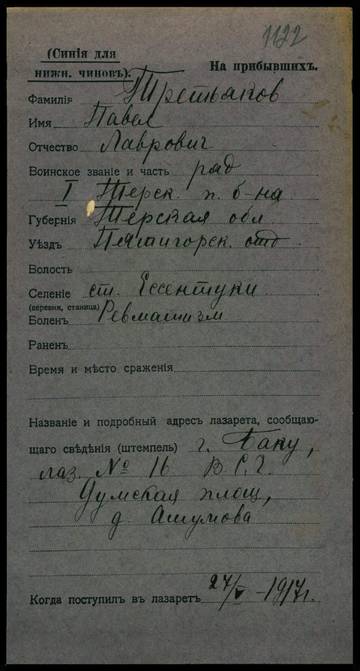 1122
(Синія для
нижн. чиновъ).
На прибывшихъ.
Фамилія Третьяков
Имя Павел
Отчество Лаврович
Воинское званіе и часть ряд
I Терск. п. б-на
Губернія Терская обл
Уѣздъ Пятигорск. отд
Волость
Селеніе ст. Ессентуки
(деревня, станица)
Боленъ Ревматизм
Раненъ
Время и мѣсто сраженія
Названіе и подробный адресъ лазарета, сообщаю-
щаго свѣдѣнія (штемпель) г. Баку,
лаз. № 16 В.С.Г.
Думская площ,
д. Ашумова
Когда поступилъ въ лазаретъ 27/V-1917г.